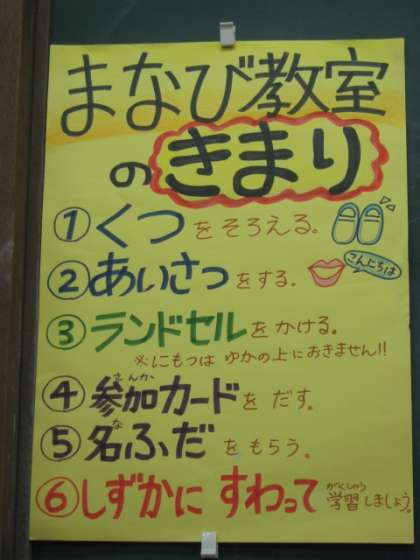 まなび教室
のきまり
①くつをそろえる。
②あいさつをする。
こんにちは
③ランドセルをかける。
※にもつは ゆかの上におきません!!
さんか
④参加カードを だす。
な
⑤名ふだ をもらう。
がくしゅう
⑥しずかに すわって 学習しましょう。